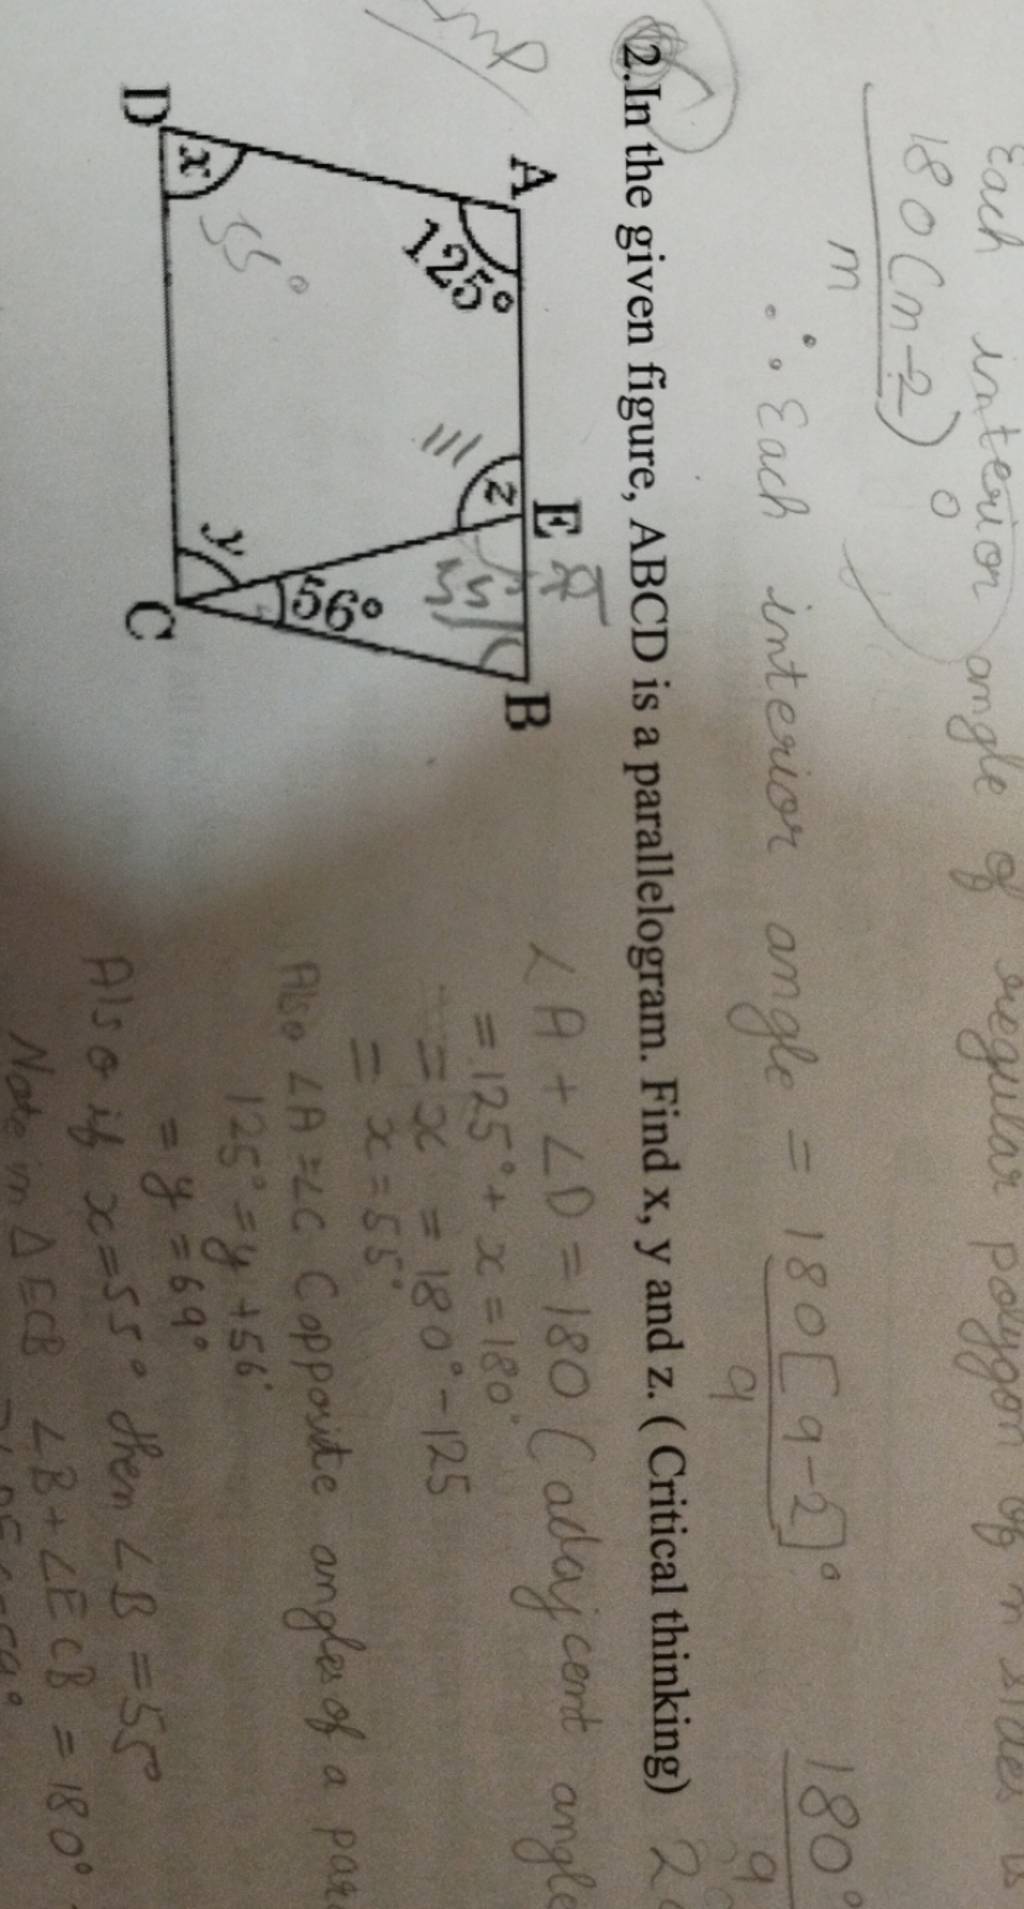 Each interior angle of regular polygon of n sides is
180(n-2)°
n
∴ Each interior angle = 180[9-2]°
9
180°
9
2.In the given figure, ABCD is a parallelogram. Find x, y and z. ( Critical thinking)
A
E
B
125°
z
56°
x
55°
y
D
C
∠A + ∠D = 180 (adajcent angle
= 125° + x = 180°
= x = 180° - 125
= x = 55°
Also ∠A = ∠C (opposite angles of a par
125° = y + 56°
= y = 69°
Also if x = 55° then ∠B = 55°
Note in Δ ECB ∠B + ∠ECB = 180°